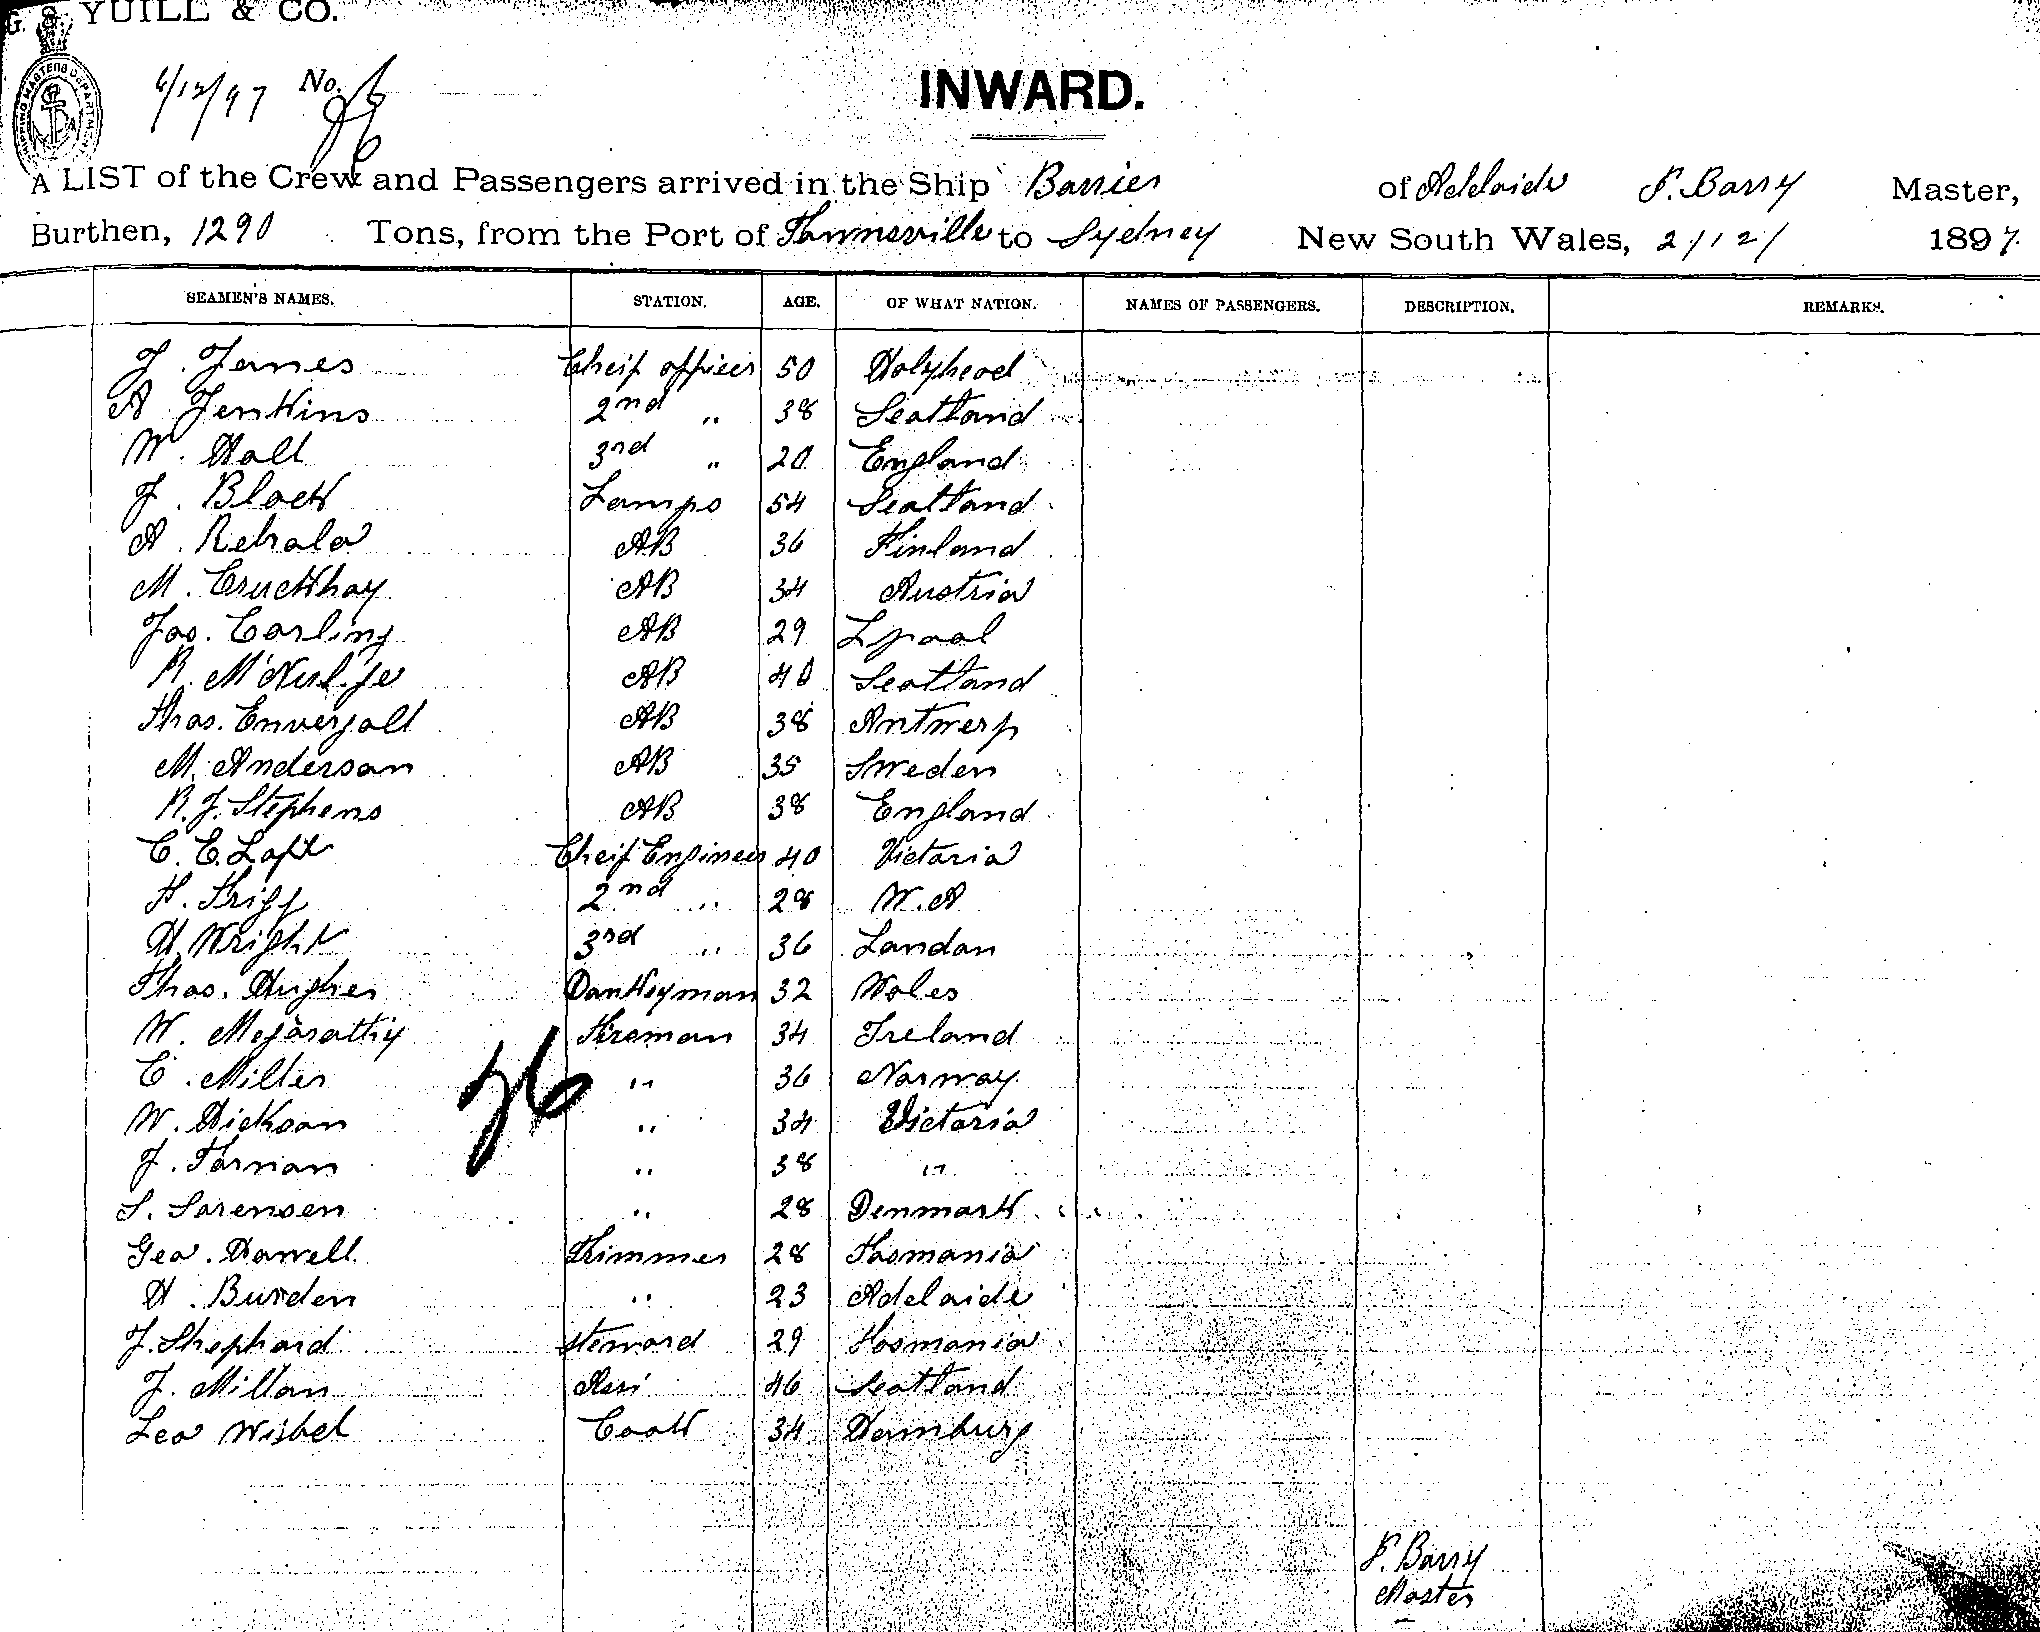 G. S. YUILL & CO.
SHIPPING MASTERS DEPARTMENT
6/12/97 No. 26
INWARD.
A LIST of the Crew and Passengers arrived in the Ship Barrier of Adelaide P. Barry Master,
Burthen, 1290 Tons, from the Port of Townsville to Sydney New South Wales, 2/12/ 1897
SEAMEN'S NAMES. STATION. AGE. OF WHAT NATION. NAMES OF PASSENGERS. DESCRIPTION. REMARKS.
J. James Cheif officer 50 Holyhead
A Jenkins 2nd " 38 Scotland
W. Hall 3rd " 20 England
J. Black Lamps 54 Scotland
A. Rebala AB 36 Finland
M. Cruckhay AB 34 Austria
Jas. Carling AB 29 Lpool
R. AB 40 Scotland
Thos. Envergall AB 38 Antwerp
M. Anderson AB 35 Sweden
R. J. Stephens AB 38 England
C. E. Loft Cheif Engineer 40 Victoria
H. Trigg 2nd " 28 W. A
H. Wright 3rd " 36 London
Thos. Hughes Donkeyman 32 Wales
W. Megarattiy Fireman 34 Ireland
C. Miller " 36 Norway
W. Dickson " 34 Victoria
J. Farnan " 38 "
S. Sorensen " 28 Denmark
Geo. Howell Trimmer 28 Tasmania
H. Burden " 23 Adelaide
J. Shephard steward 29 Tasmania
J. Millan Assi 46 Scotland
Leo Wisbel Cook 34 Hamburg
26
P. Barry
Master